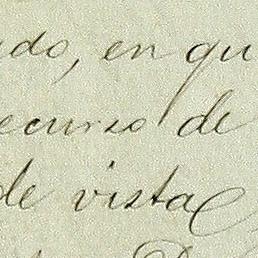 ado, en qu
ecurso de
de vista